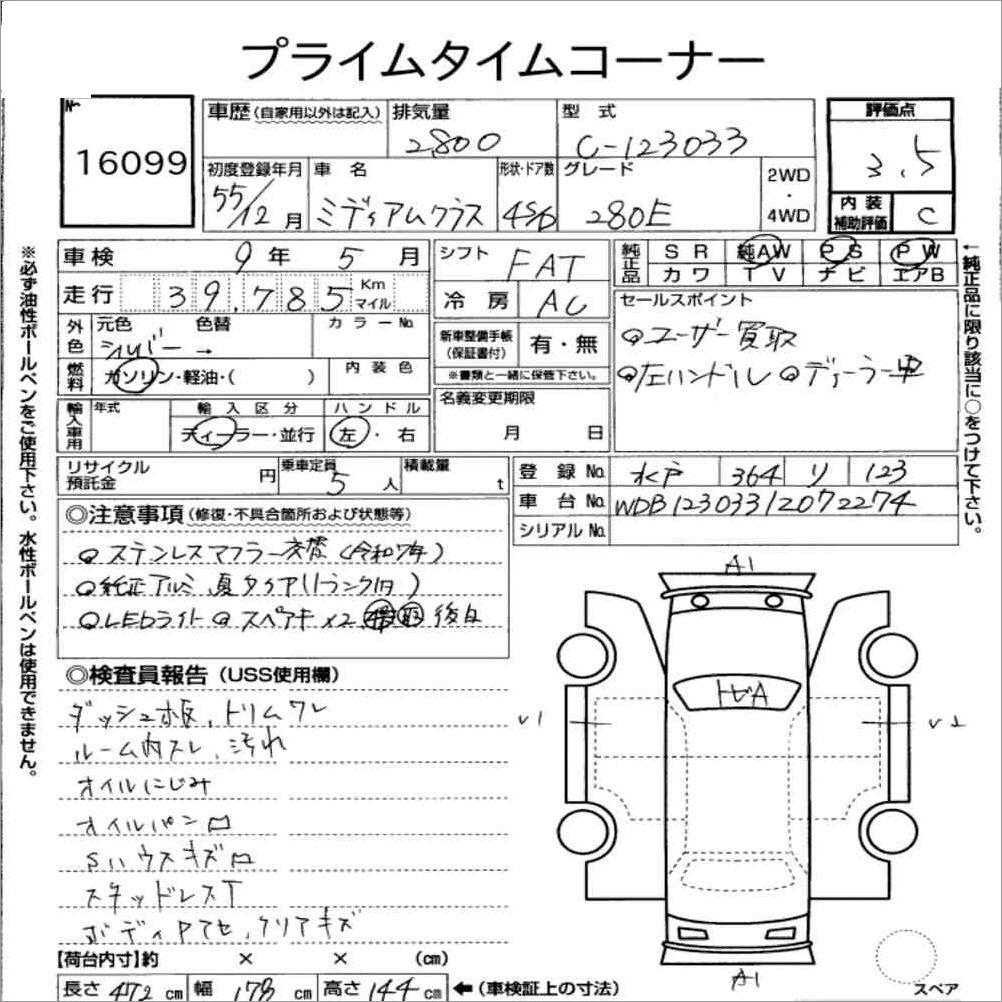 プライムタイムコーナー
№
16099
車歴(自家用以外は記入)
排気量
2,800
型 式
C-123033
評価点
3.5
初度登録年月
55/12月
車 名
ミディアムクラス
形状・ドア数
4SD
グレード
280E
2WD
・
4WD
内 装
補助評価
C
車検 9年 5月
シフト
FAT
純正品
SR 純AW PS PW
カワ TV ナビ エアB
走行 39,785 Km
マイル
冷 房
AC
セールスポイント
外色
元色 色替
シルバー →
カラーNo.
新車整備手帳
(保証書付)
有・無
※書類と一緒に保管下さい。
◎ユーザー買取
◎左ハンドル ◎ディーラー車
燃料
ガソリン・軽油・( )
内 装 色
輸入車用
年式
輸 入 区 分
ディーラー・並行
ハ ン ド ル
左・右
名義変更期限
月 日
リサイクル
預託金
円
乗車定員
5人
積載量
t
登 録 No. 水戸 364 リ 123
車 台 No. WDB12303312072274
シリアル No.
◎注意事項(修復・不具合箇所および状態等)
◎ステンレスマフラー交替(令和7年)
◎純正アルミ 夏タイア(トランク内)
◎LEDライト ◎スペアキー×2 後日
◎検査員報告(USS使用欄)
ダッシュ板、トリムワレ
ルーム内スレ、汚れ
オイルにじみ
オイルパン凹
Sハウスキズ凹
スタッドレスT
ボディアセ、クリアキズ
A1
トビA
U1
U2
A1
スペア
【荷台内寸】約 × × (cm)
長さ 472 cm 幅 178 cm 高さ 144 cm ←(車検証上の寸法)
※必ず油性ボールペンをご使用下さい。水性ボールペンは使用できません。
↑純正品に限り該当に○をつけて下さい。